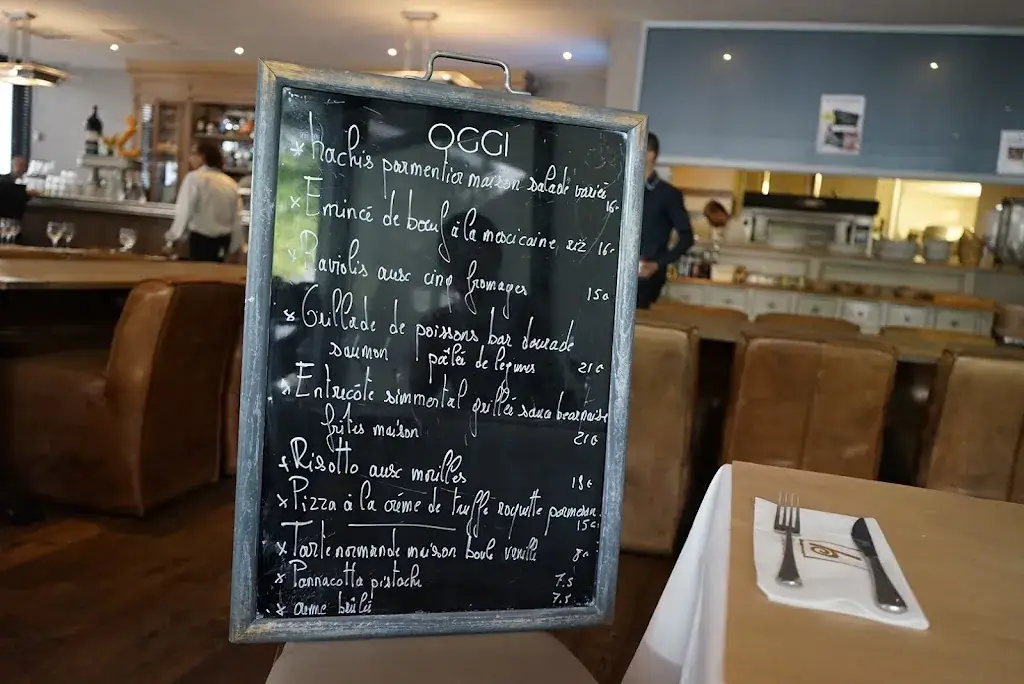 OGGI
* Hachis parmentier maison salade variée
16€
* Emincé de bœuf à la mexicaine riz 16€
* Raviolis aux cinq fromages 15€
* Grillade de poissons bar dourade
saumon pâtée de legumes 21€
* Entrecôte simmental grillés sauce bearnaise
frites maison 21€
* Risotto aux morilles 18€
* Pizza à la crème de truffe roquette parmesan
15€
* Tarte normande maison boule vanille 8€
* Pannacotta pistache 7.5
* creme brûlée 7.5